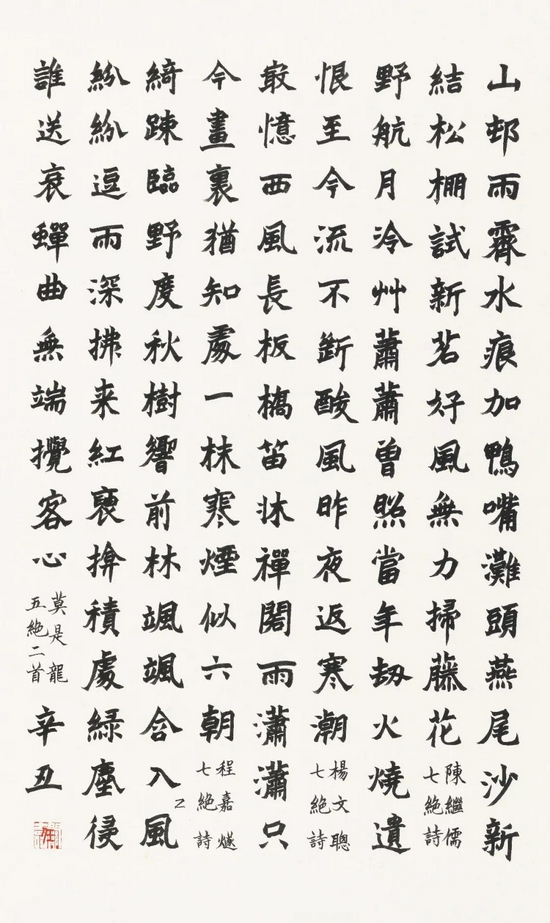 山邨雨霽水痕加鴨嘴灘頭燕尾沙新
結松棚試新茗好風無力掃藤花 陳繼儒七絕詩
野航月冷艸蕭蕭曾照當年劫火燒遺
恨至今流不斷酸風昨夜返寒潮 楊文聰七絕詩
最憶西風長板橋笛牀禪閣雨瀟瀟只
今畫裏猶知處一抹寒煙似六朝 程嘉燧七絕詩
綺疎臨野度秋樹響前林颯颯含入乙風
紛紛逗雨深拂来紅裛揜積處綠塵侵
誰送哀蟬曲無端攪客心 莫是龍五絕二首 辛丑